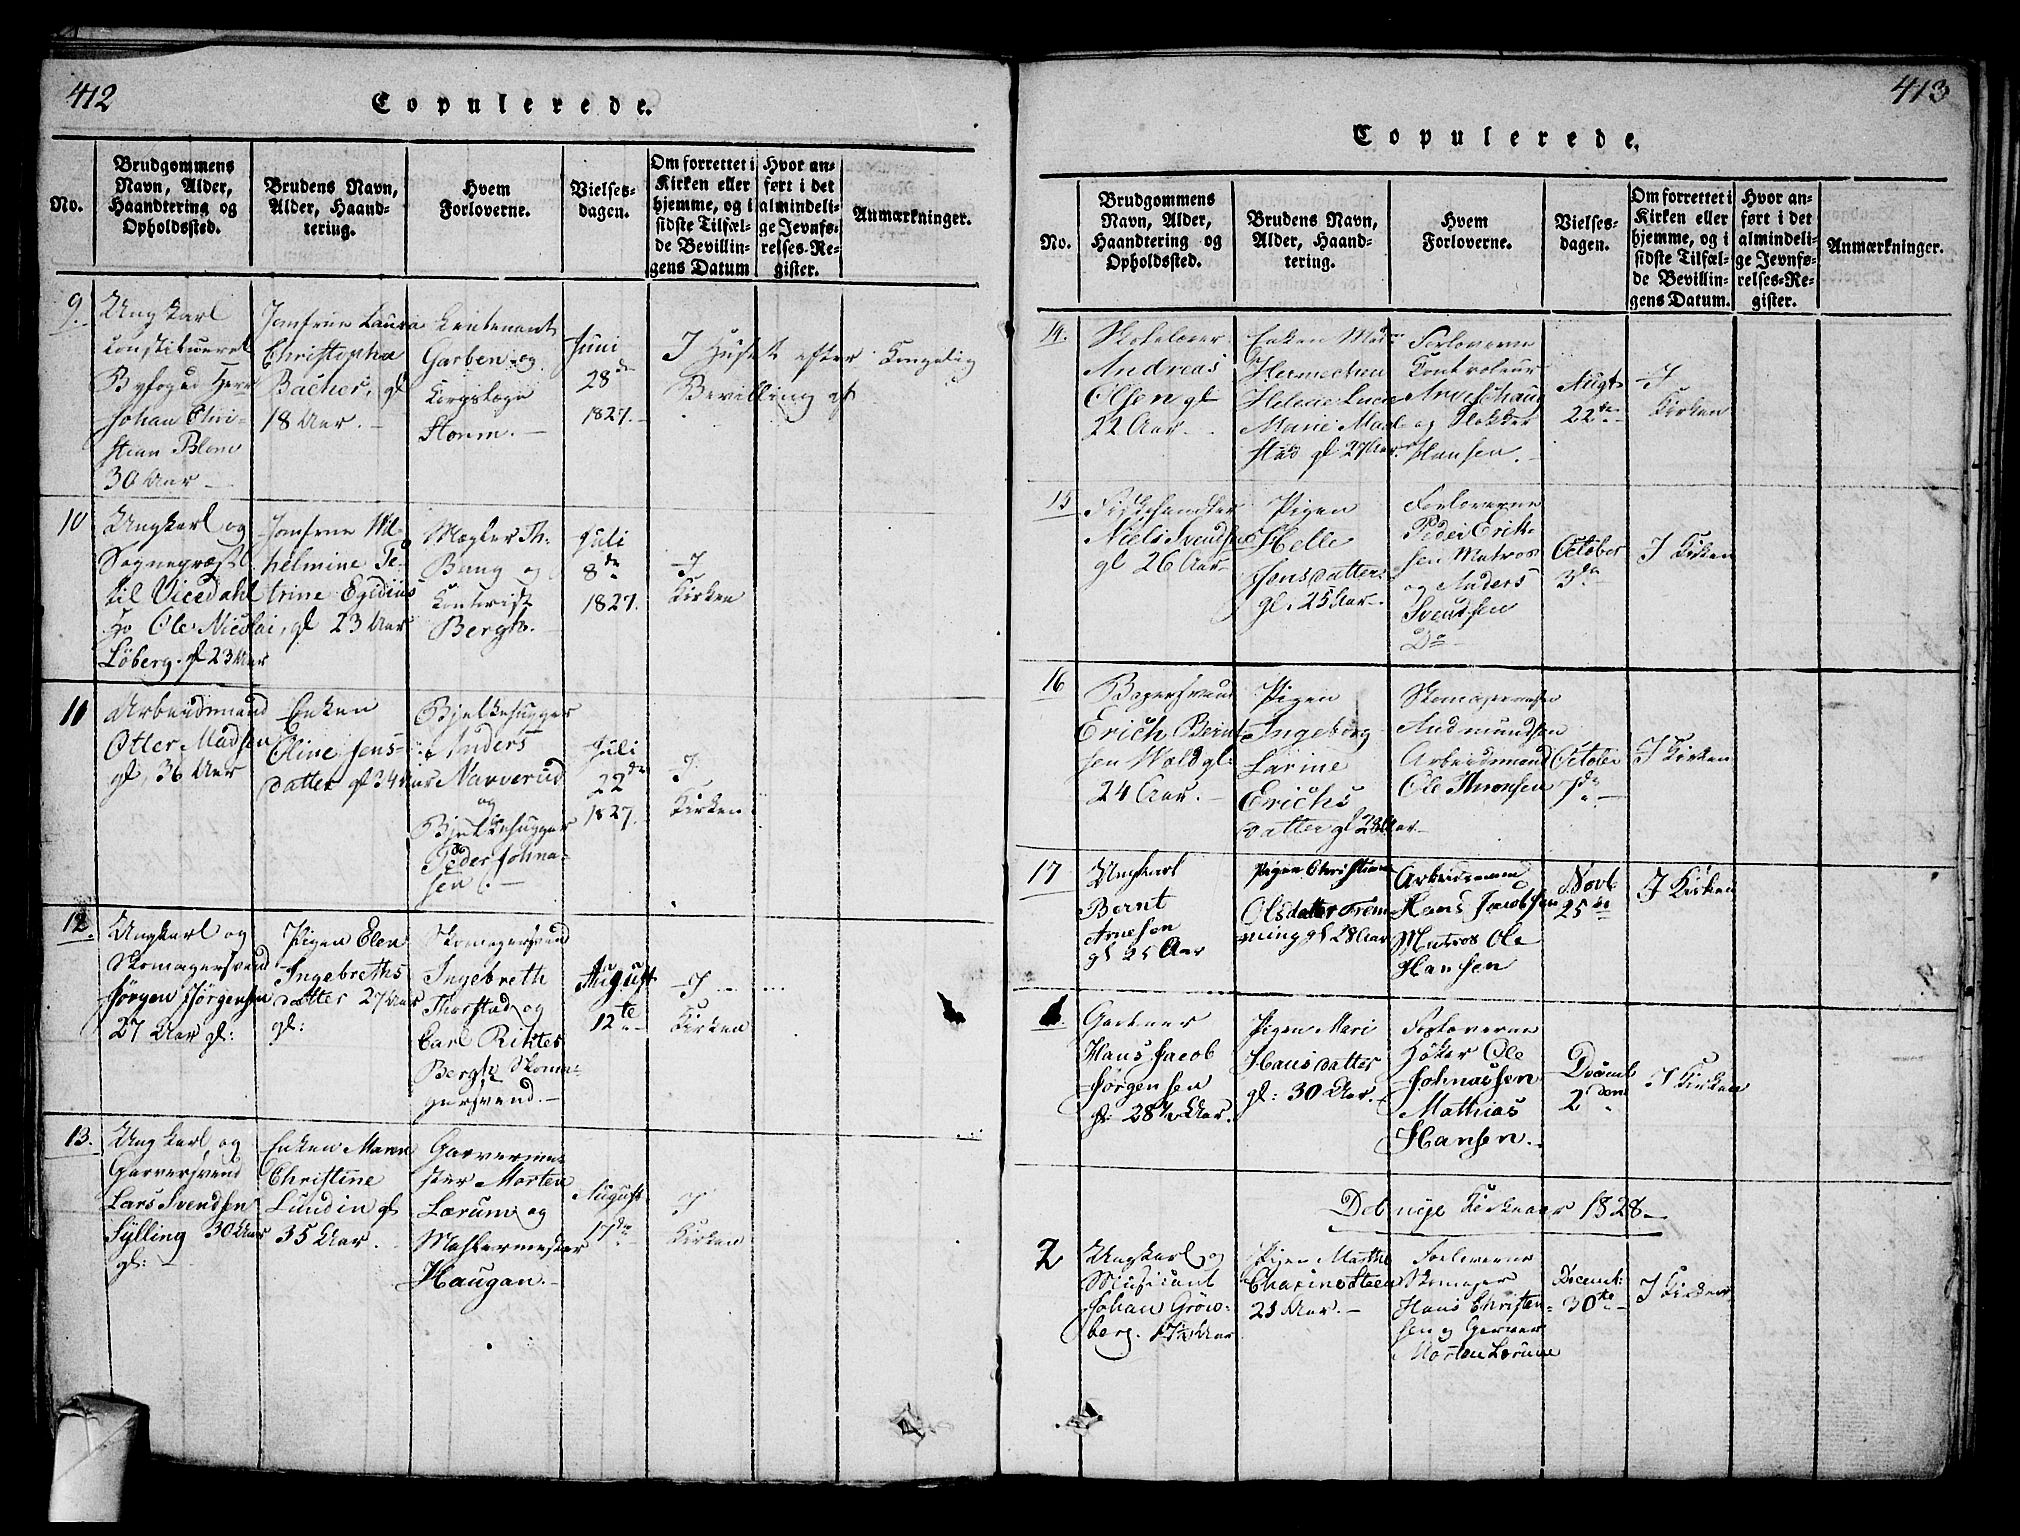 412
Copulerede.
No.
Brudgommens
Navn, Alder,
Haandtering og
Opholdssted.
Brudens Navn,
Alder, Haand-
tering.
Hvem
Forloverne.
Vielses-
dagen.
Om forrettet i
Kirken eller
hjemme, og i
sidste Tilfæl-
de Bevillin-
gens Datum
Hvor an-
ført i det
almindeli-
ge Jevnfø-
relses-Re-
gister.
Anmærkninger.
9.
Ungkarl
constitueret
Byfoged Herr
Johan Chri-
stian Blom
30 Aar
Jomfrue Laura
Christopha
Bacher, gl
18 Aar.
Lieutenant
Garben og
Storm.
Juni
28de
1827.
I Huset efter Kongelig
Bevilling af
10
Ungkarl og
Sognepræst
til Vicedahl
Hr Ole Nicolai
Löberg. gl 23 Aar
Jomfrue
helmine Pe-
trine Egidius
gl 23 Aar
Mægler Th.
Bang og
Contorist
Bergh.
Juli
8de
1827.
I
Kirken
11
Arbeidsmand
Otter Madsen
gl, 36 Aar
Enken
Oline Jens-
datter gl 34 Aar
Bjelkehugger
Anders
Narverud
og
Bjelkehugger
Peder Johna-
sen
Juli
22de
1827.
I
Kirken
12.
Ungkarl og
Skomagersvend
Jörgen Jörgensen
27 Aar gl:
Pigen Elen
Ingebreths
datter 27 Aar
gl:
Skomagersvend
Ingebreth
Thorstad og
Carl
Bergh Skoma-
gersvend.
August
12te
I
Kirken
13.
Ungkarl og
Garversvend
Lars Svendsen
Sylling 30 Aar
gl:
Enken Maren
Christine
Lundin gl
35 Aar.
Garverme-
ster Morten
Lærum og
Mahlermester
Haugan.
August
17de
I
Kirken
413
Copulerede.
No.
Brudgommens
Navn, Alder,
Haandtering og
Opholdssted.
Brudens Navn,
Alder, Haand-
tering.
Hvem
Forloverne.
Vielses-
dagen.
Om forrettet i
Kirken eller
hjemme, og i
sidste Tilfæl-
de Bevillin-
gens Datum.
Hvor an-
ført i det
almindeli-
ge Jevnfø-
relses-Re-
gister.
Anmærkninger.
14.
Skolelærer
Andreas
Olsen gl
22 Aar.
Enken
Helene Lucie
Marie
gl 27 Aar.
Forloverne
Controleur
og Klokker
Hansen.
Augt
22de
I
Kirken
15
Fiskehandler
Niels Svendsen
gl 26 Aar
Pigen
Helle
Jensdatter
gl. 25 Aar.
Forloverne
Peder Erik-
sen Matros
og Anders
Svendsen
Do
October
3de
I Kirken
16
Bagersvend
Erich Bernt-
sen Wold gl:
24 Aar.
Pigen
Ingeborg
Larine
Erichs
datter gl 28 Aar
Andmundsen
Arbeidsmand
Ole Thronsen
October
I Kirken
17
Ungkarl
Bernt
Arnesen
gl 25 Aar
Pigen Christiane
Olsdatter Trem-
ming gl 28 Aar
Arbeidsmand
Hans Jacobsen
Matros Ole
Hansen
Novb
25de
I Kirken
1.
Gartner
Hans Jacob
Jörgensen
gl: 28 1/2 Aar.
Pigen Mari
Hansdatter
gl: 30 Aar.
Forloverne
Höker Ole
Johnassen
Mathias
Hansen.
2den
I Kirken
Det nye Kirkeaar 1828
2
Ungkarl og
Musicant
Johan Grön-
berg.
Pigen Marthe
Steen
Forloverne
Skomager
Hans Christen-
sen og Garver
Morten Lerum
Decemb:
30te
I Kirken